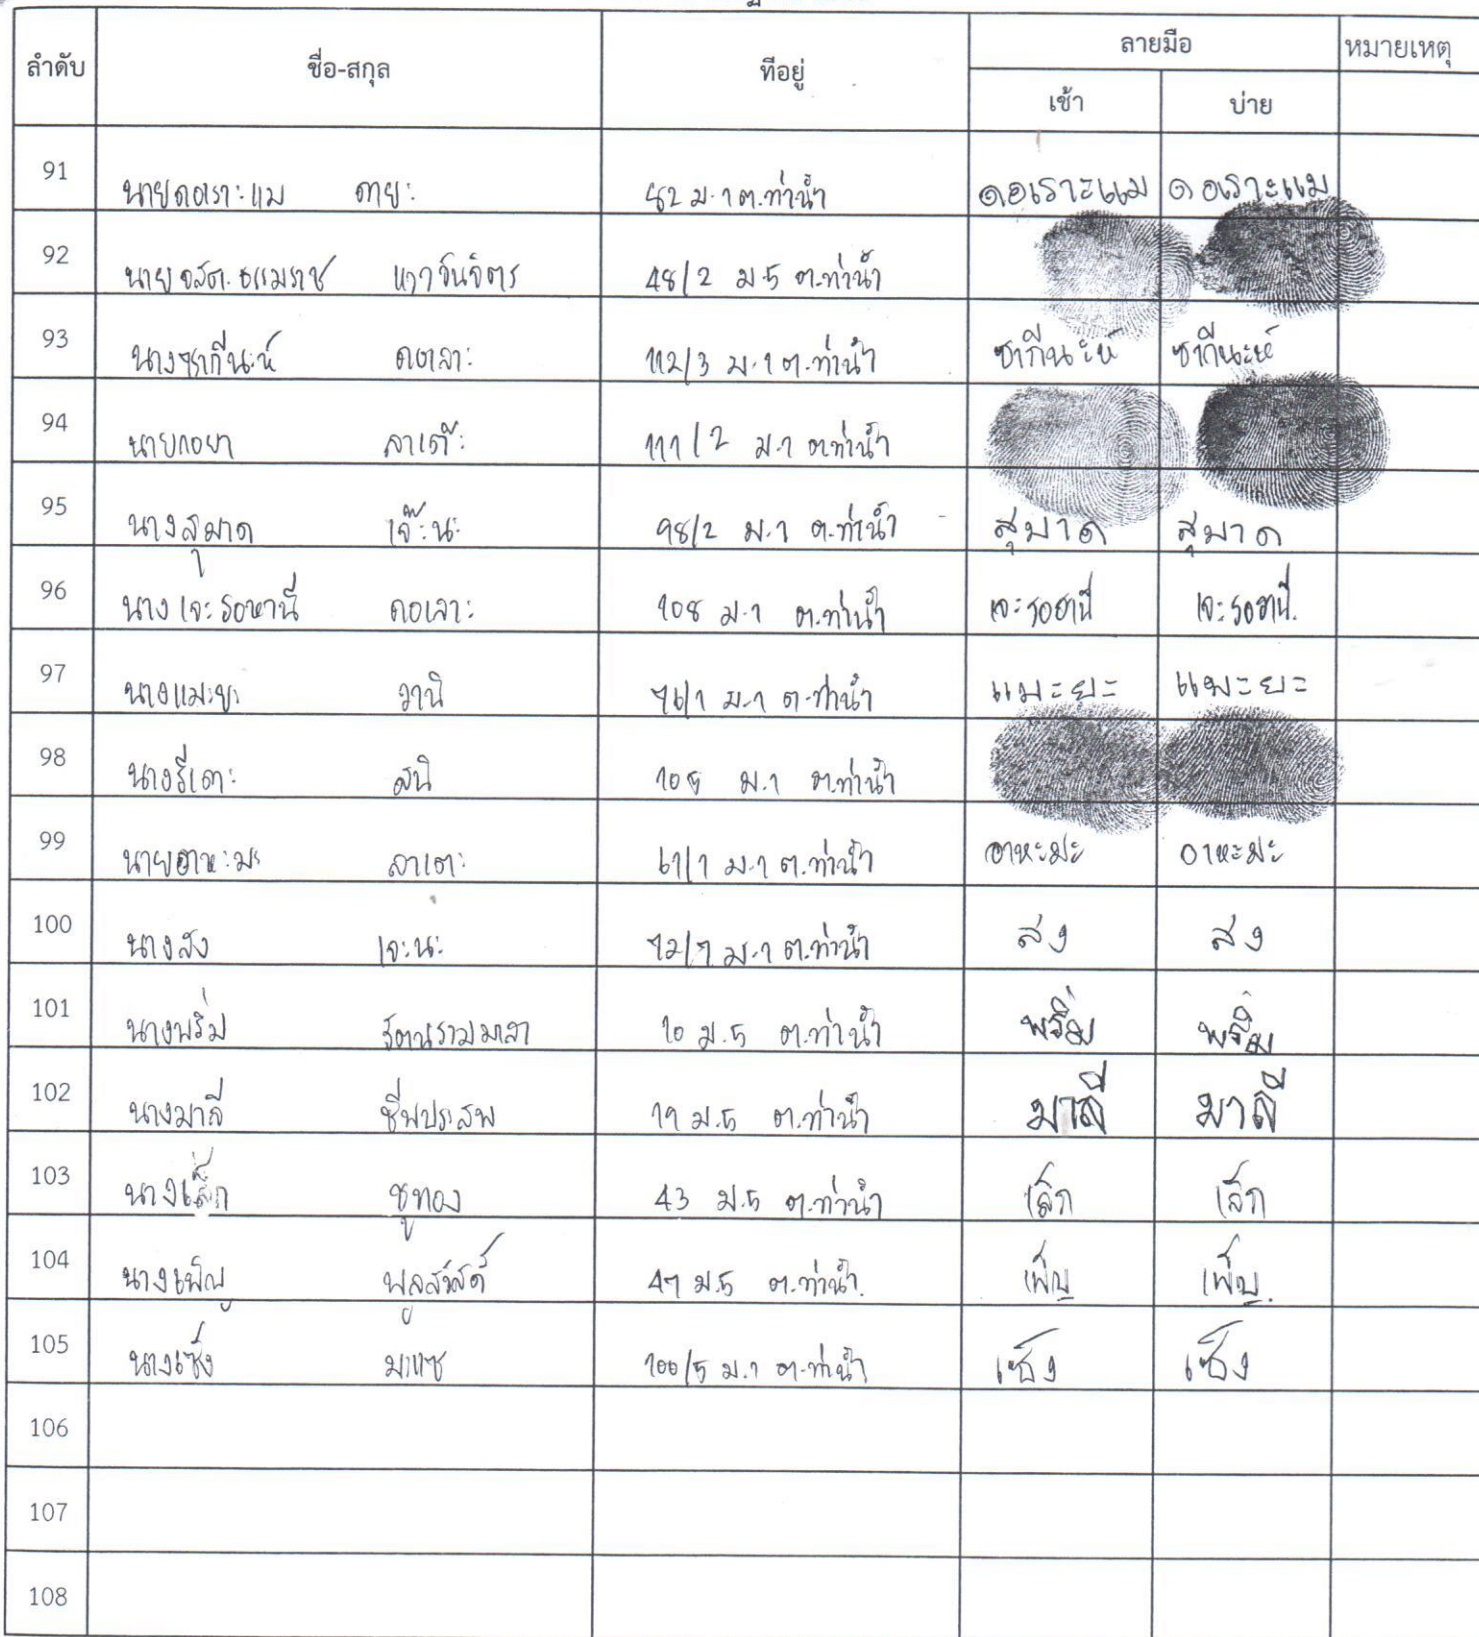 ลำดับ ชื่อ-สกุล ที่อยู่ ลายมือ หมายเหตุ
เช้า บ่าย
91 นายดอเราะแม ตายะ 82 ม.1 ต.ท่าน้ำ ดอเราะแม ดอเราะแม
92 นาย 48/2 ม.5 ต.ท่าน้ำ
93 นางซากีนะห์ ดอเลาะ 112/3 ม.1 ต.ท่าน้ำ ซากีนะห์ ซากีนะห์
94 นายกอยา ลาเต๊ะ 111/2 ม.1 ต.ท่าน้ำ
95 นางสุมาด เจ๊ะนะ 98/2 ม.1 ต.ท่าน้ำ สุมาด สุมาด
96 นางเจะรอหานี ดอเลาะ 108 ม.1 ต.ท่าน้ำ เจะรอฮานี เจะรอฮานี
97 นางแมะยะ วานิ 76/1 ม.1 ต.ท่าน้ำ แมะยะ แมะยะ
98 นางรีเตาะ สนิ ม.1 ต.ท่าน้ำ
99 นายอาหะมะ ลาเตะ 61/1 ม.1 ต.ท่าน้ำ อาหะมะ อาหะมะ
100 นางสง เจะนะ ม.1 ต.ท่าน้ำ สง สง
101 นางพริ่ม 10 ม.5 ต.ท่าน้ำ พริ่ม พริ่ม
102 นางมาลี ชีพประสพ 19 ม.5 ต.ท่าน้ำ มาลี มาลี
103 นางเล็ก ชูทอง 43 ม.5 ต.ท่าน้ำ เล็ก เล็ก
104 นางเพ็ญ พูลสวัสดิ์ 47 ม.5 ต.ท่าน้ำ เพ็ญ เพ็ญ
105 นางเซ็ง มะแซ 100/5 ม.1 ต.ท่าน้ำ เซ็ง เซ็ง
106
107
108